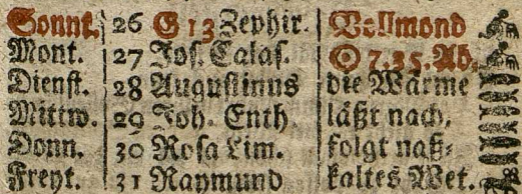 Sonnt. 26 G 13 Zephir. Vollmond
Mont. 27 Jos. Calas. ☉ 7. 35. Ab.
Dienst. 28 Augustinus die Wärme
Mittw. 29 Joh. Enth läßt nach,
Donn. 30 Rosa Lim. folgt naß-
Freyt. 31 Raymund kaltes Wet.